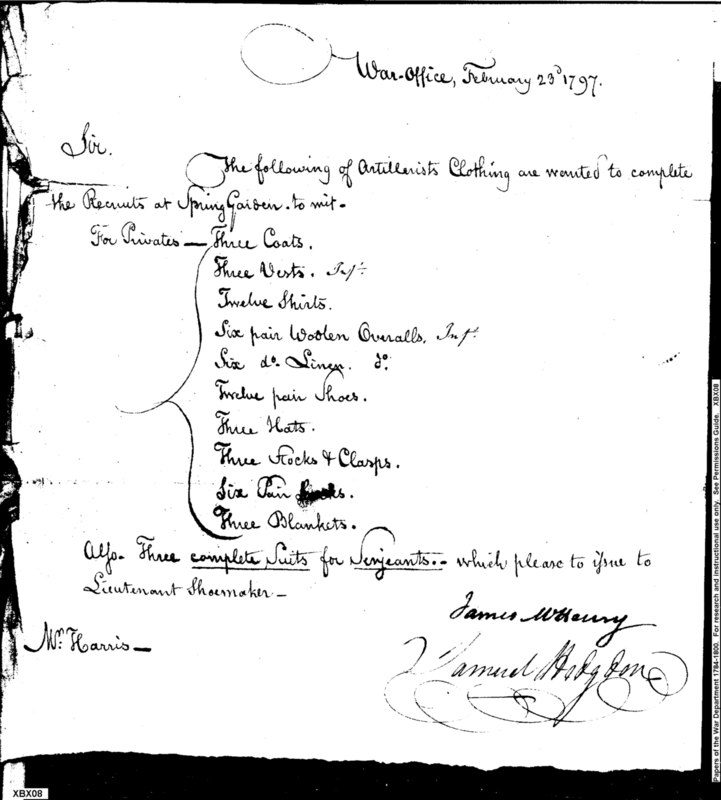 War-Office, February 23d 1797.
Sir.
The following of Artillerists Clothing are wanted to complete
the Recruits at Spring Garden. to wit-
For Privates — Three Coats.
Three Vests. Infy.
Twelve Shirts.
Six pair Woolen Overalls, Infy.
Six do. Linen. do.
Twelve pair Shoes.
Three Hats.
Three Stocks & Clasps.
Six Pair
Three Blankets.
Also- Three complete Suits for Serjeants.- which please to issue to
Lieutenant Shoemaker-
James McHenry
Mr. Harris—
Samuel Hodgdon
Papers of the War Department 1784-1800. For research and instructional use only. See Permissions Guide. XBX08
XBX08